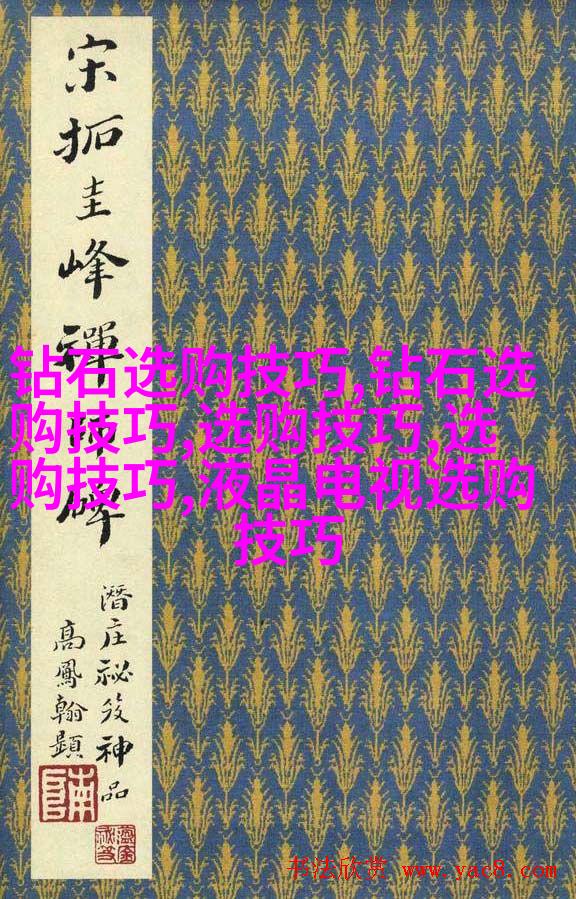 宋拓圭峰禅师碑
潜庄秘笈神品
高凤翰題
钻石选购技巧,钻石选
购技巧,选购技巧,选
购技巧,液晶电视选购
技巧
书法欣赏 www.yac8.com